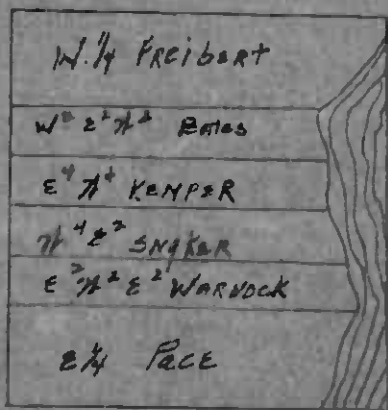 W. 1/4 Freibert
W² E² N² Bates
E⁴ N⁴ KEMPER
N⁴ E² SNYKER
E² N² E² WARNOCK
E 1/4 PacE